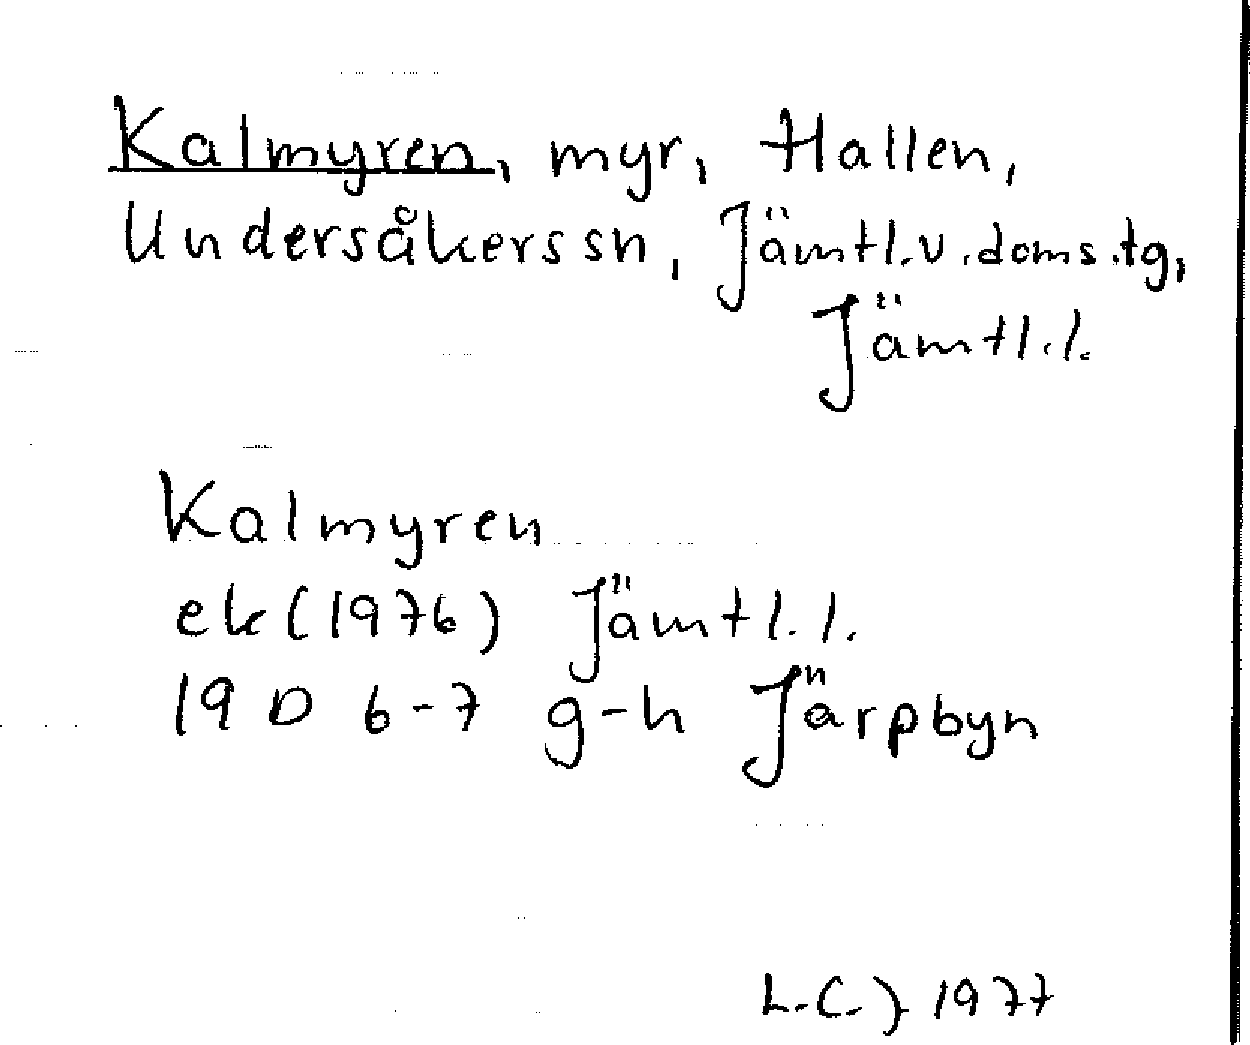 Kalmyren, myr, Hallen,
Undersåkers sn, Jämtl.v.doms.tg,
Jämtl.l.
Kalmyren
ek (1976) Jämtl.l.
19 D 6-7 g-h Järpbyn
L-C. J 1977